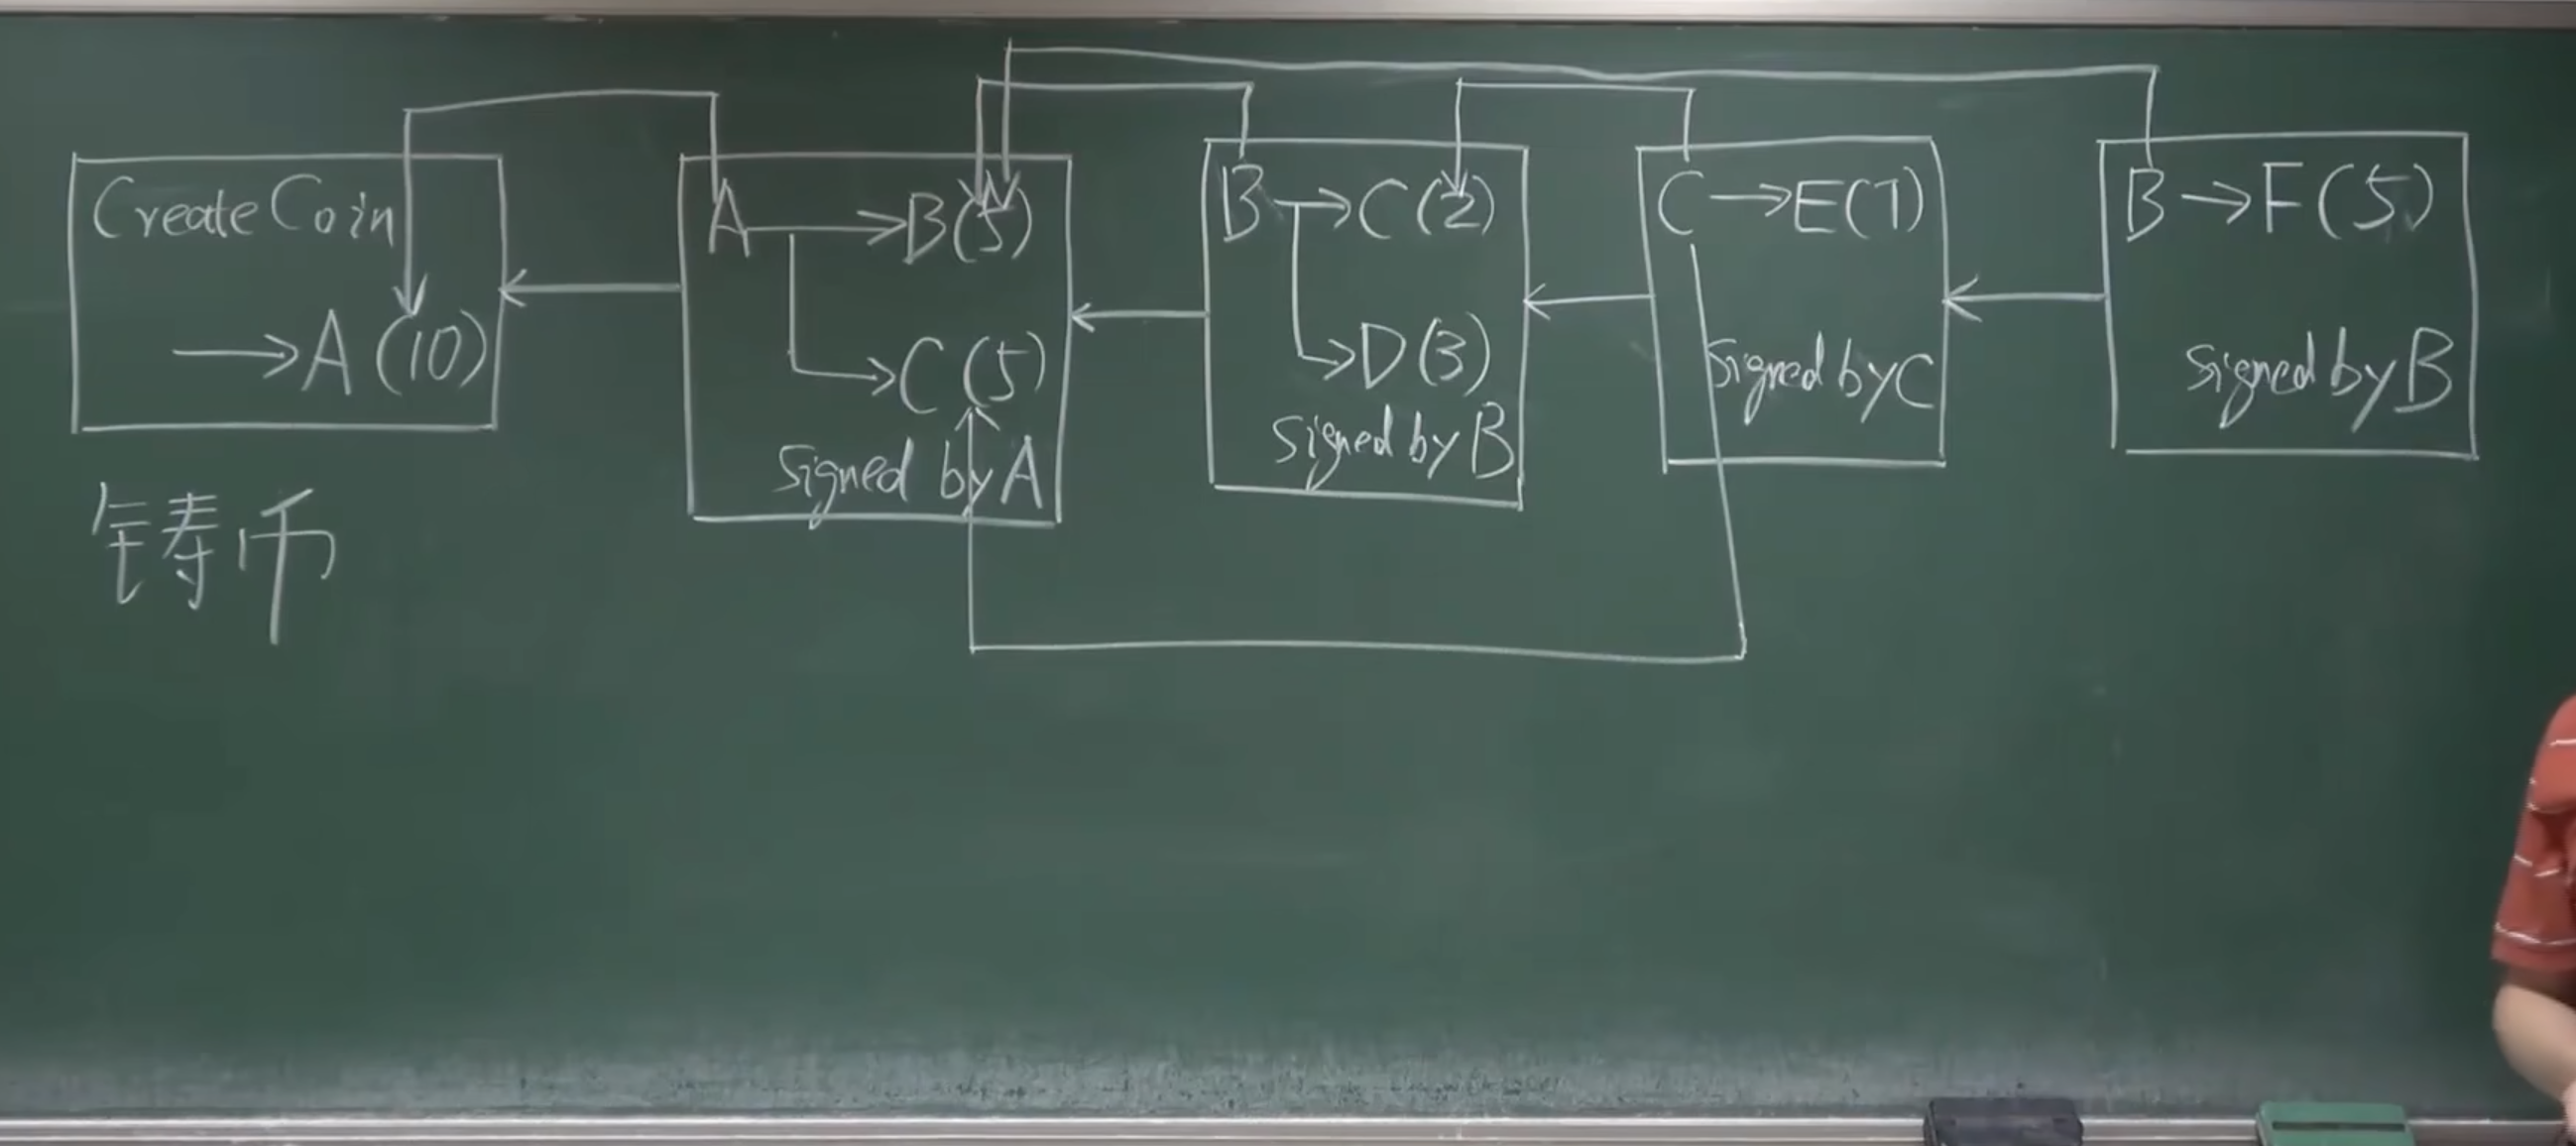 CreateCoin
→A(10)
铸币
A→B(5)
→C(5)
Signed by A
B→C(2)
→D(3)
Signed by B
C→E(7)
Signed by C
B→F(5)
Signed by B